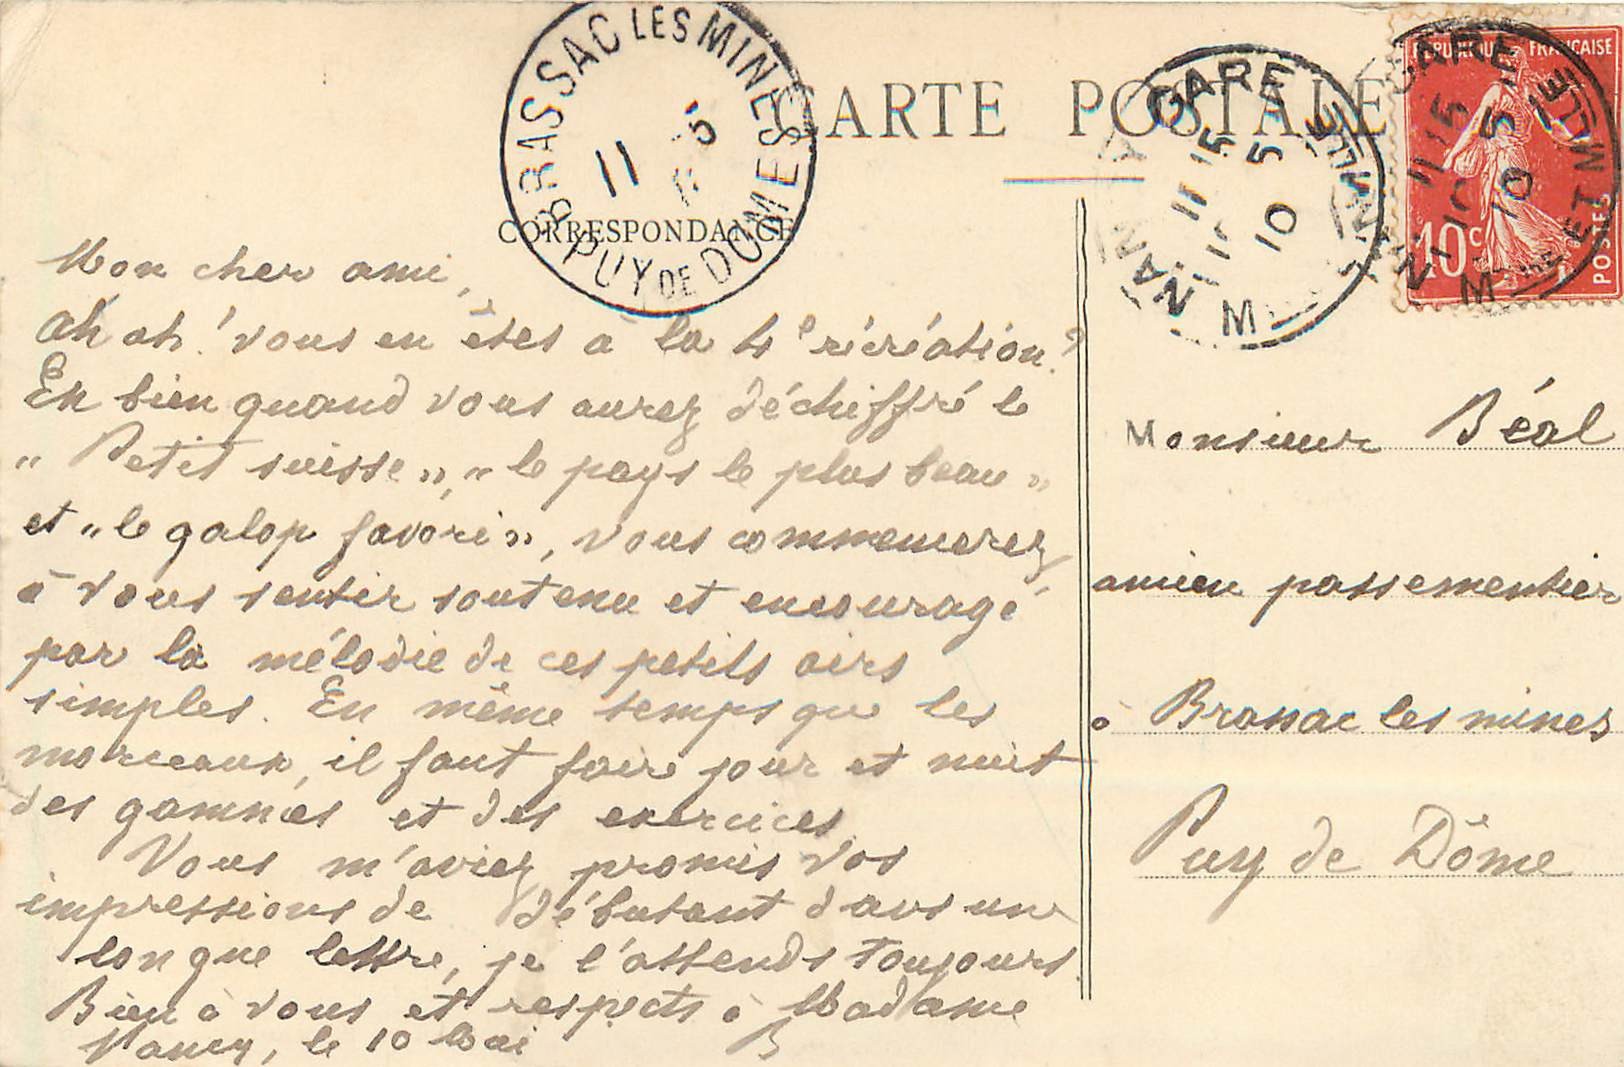 CARTE POSTALE
CORRESPONDANCE
BRASSAC LES MINES
11 5
PUY DE DOME
NANCY GARE
11 15
10 5
10
RÉPUBLIQUE FRANÇAISE
10c
POSTES
GARE
11 15
10 5
10
Mon cher ami,
Ah ah ! vous en êtes à la 4e récréation ?
Eh bien quand vous aurez déchiffré le
„ Petit suisse „, „ le pays le plus beau „
et „ le galop favori „, vous commencerez
à vous sentir soutenu et encouragé
par la mélodie de ces petits airs
simples. En même temps que les
morceaux, il faut faire jour et nuit
des gammes et des exercices.
Vous m'aviez promis vos
impressions de débutant dans une
longue lettre, je l'attends toujours.
Bien à vous et respects à Madame
Nancy, le 10 Mai B
Monsieur Béal
ancien passementier
à Brassac les mines
Puy de Dôme